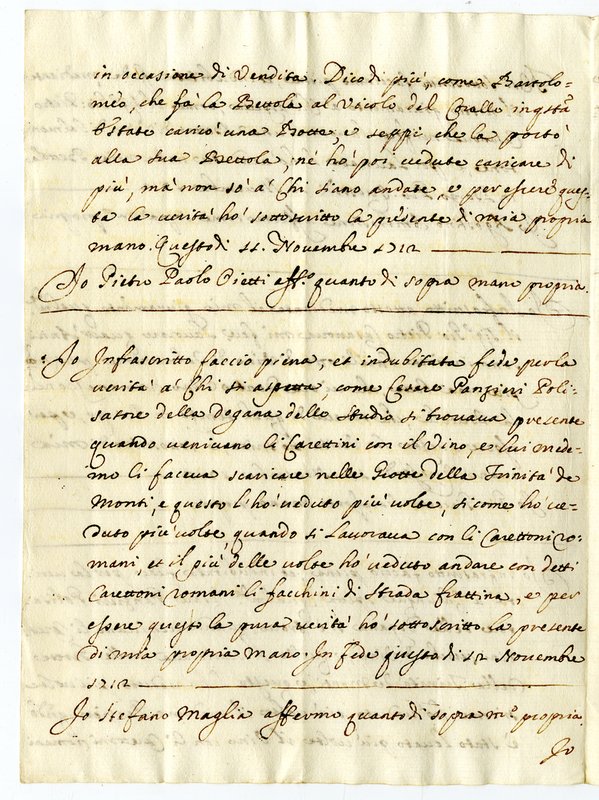 in occasione di Vendita. Dico di più, come Bartolo-
meo, che fà la Bettola al Vicolo del Cavallo in qsta
Estate caricò una Botte, e seppi, che la portò
alla sua Bettola, nè hò poi vedute caricare di
più, mà non sò à Chi siano andate, e per essere ques-
ta la verità hò sottoscritto la presente di mia propria
mano. Questo dì 11. Novembre 1712
Io Pietro Paolo Pietti affo. quanto di sopra mano propria.
Io Infrascritto faccio piena, et indubitata fede per la
verità à Chi si aspetta, come Cesare Panzieri Poli-
satore della Dogana dello Studio si trovava presente
quando venivano li Carettini con il Vino, e lui mede-
mo li faceva scaricare nelle Grotte della Trinità de
Monti, e questo l'hò veduto più volte, si come hò ve-
duto più volte, quando si Lavorava con li Carettoni ro-
mani, et il più delle volte hò veduto andare con detti
Carettoni romani li facchini di strada frattina, e per
essere questo la pura verità hò sottoscritto la presente
di mia propria mano. In Fede questo dì 12 Novembre
1712
Io Stefano Maglia affermo quanto di sopra mo. propria.
Io